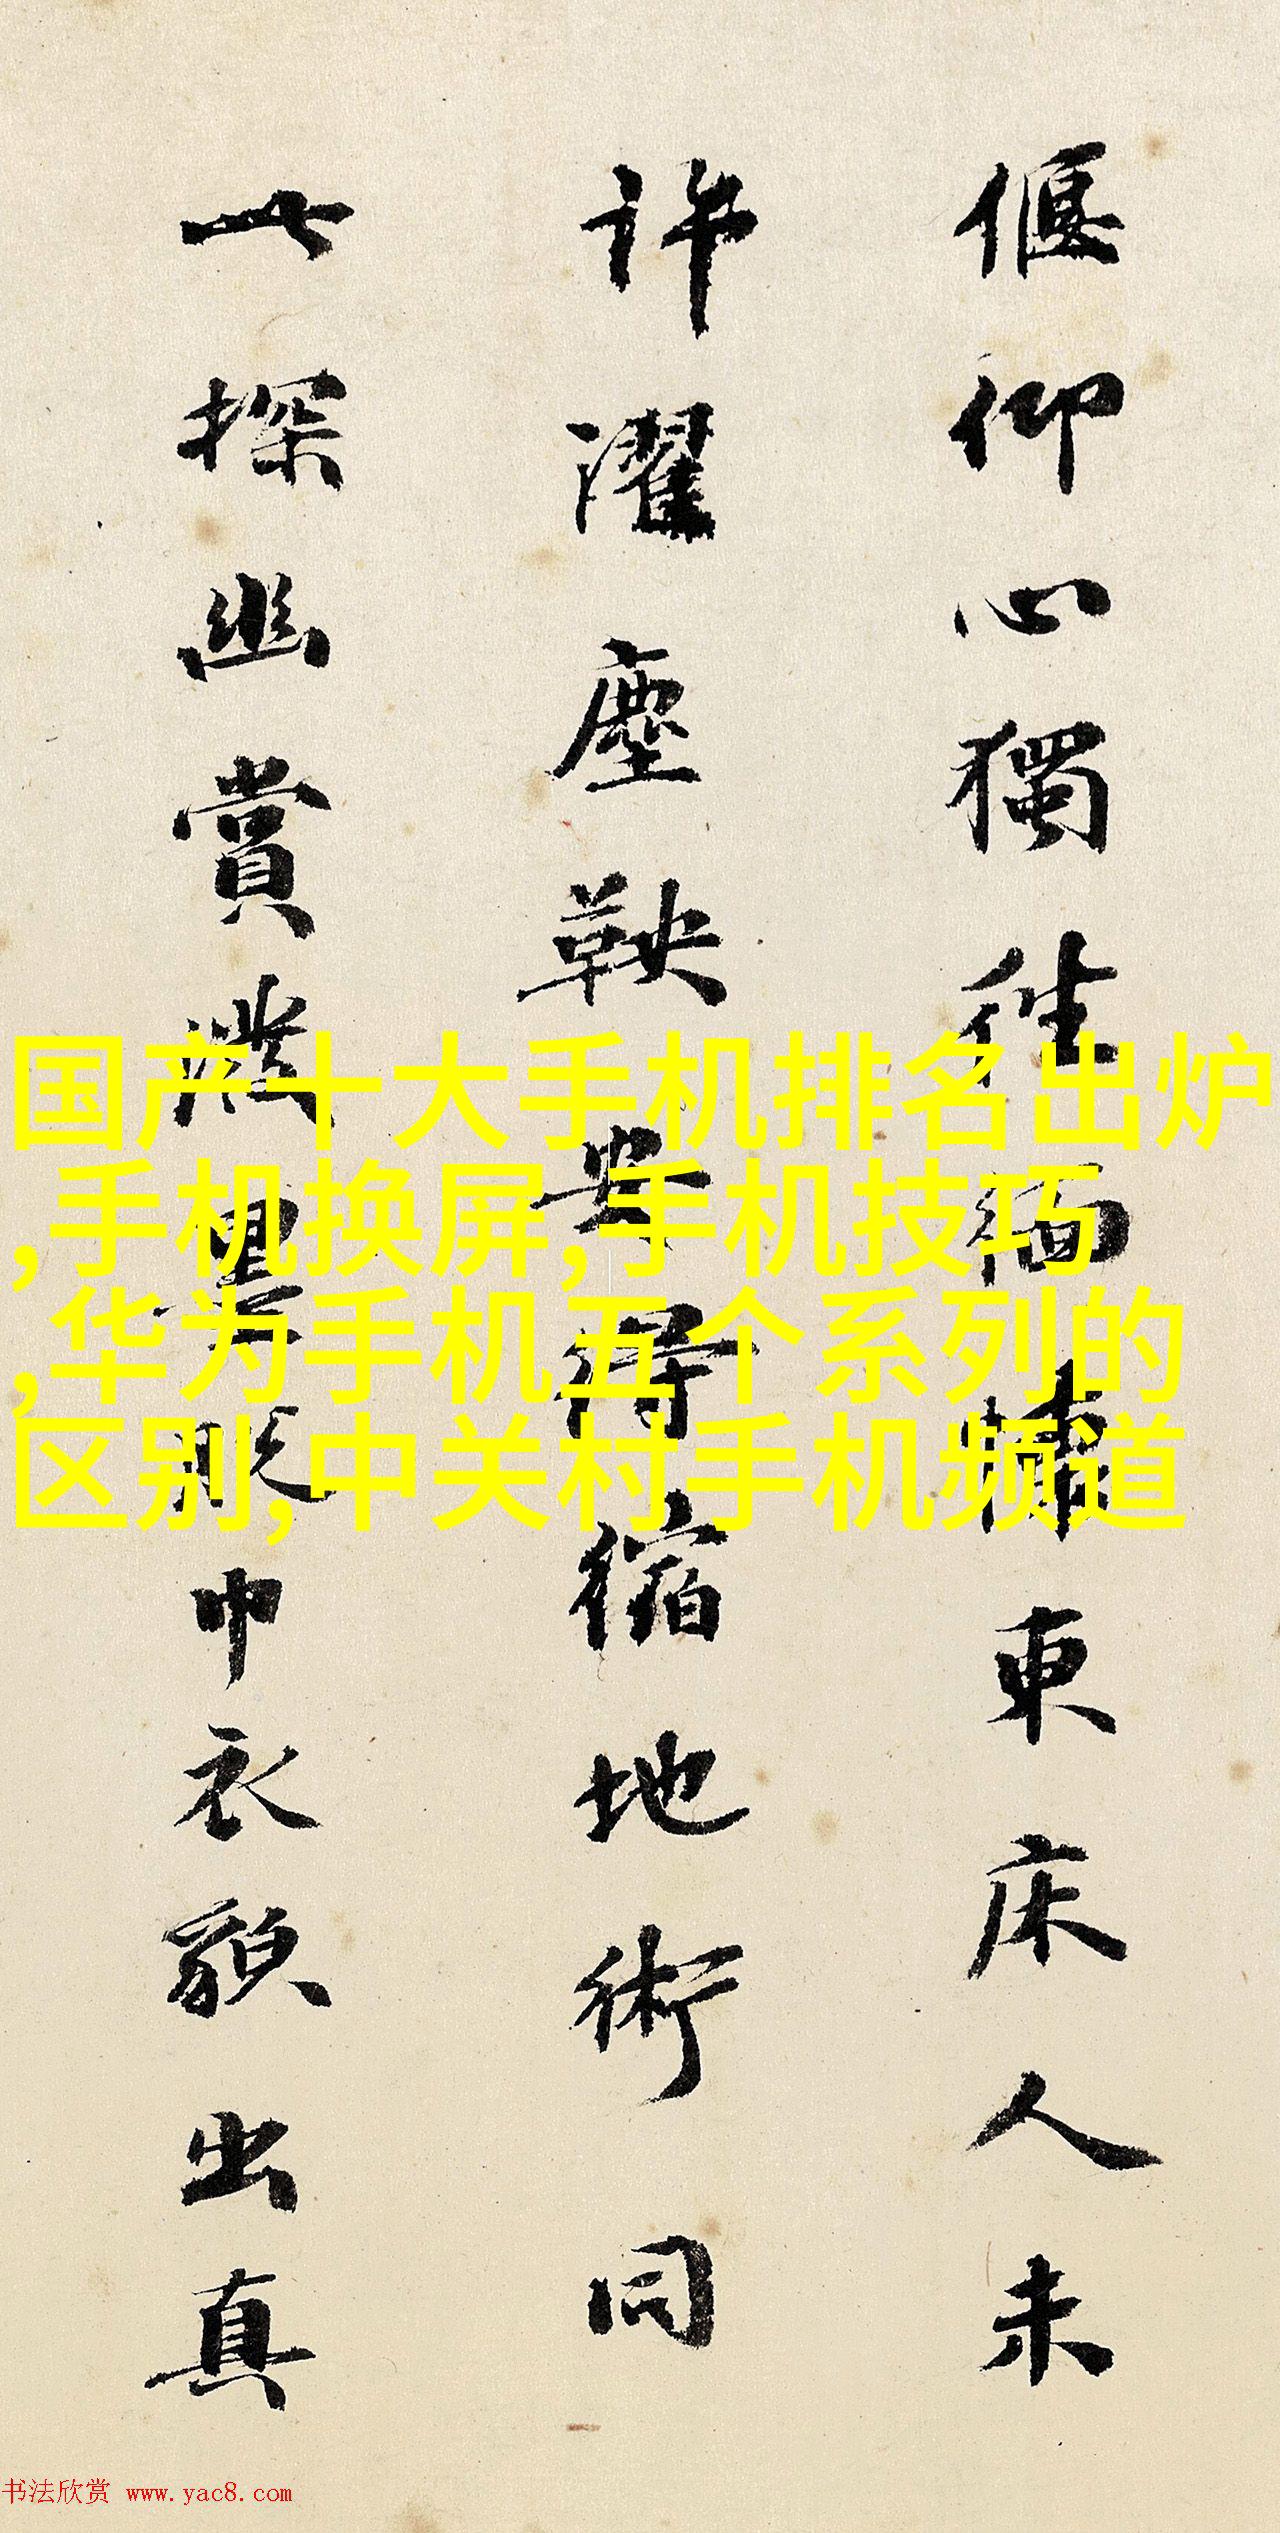 偃仰心獨往緬懷東床人未
許濯塵鞅安得縮地術同
此探幽賞濺墨脫巾衣貌出真
国产十大手机排名出炉
,手机换屏,手机技巧
,华为手机五个系列的
区别,中关村手机频道
书法欣赏 www.yac8.com